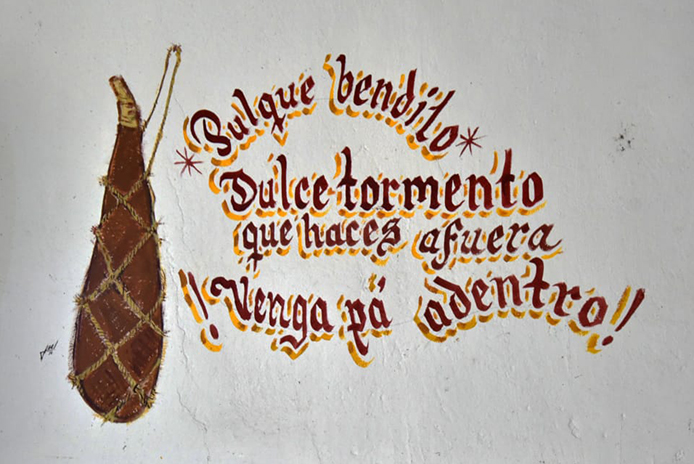 Pulque bendito
Dulce tormento
que haces afuera
!!Venga pä adentro!!